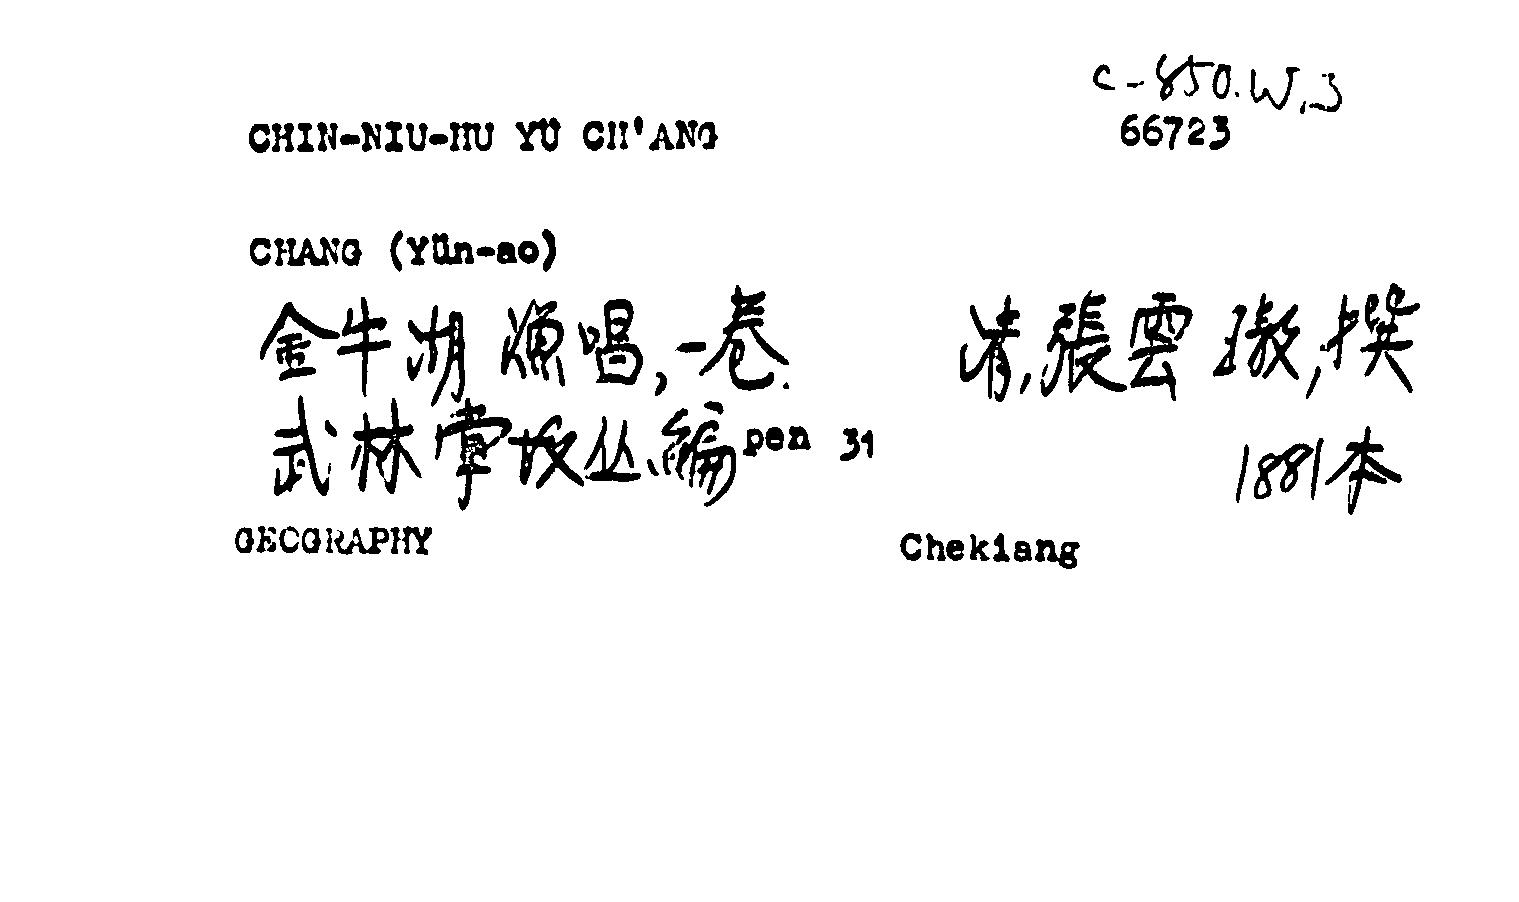 C-850.W.3
CHIN-NIU-HU YÜ CH'ANG 66723
CHANG (Yün-ao)
金牛湖漁唱,一卷. 清,張雲璈,撰
武林掌故丛編 pen 31 1881本
GEOGRAPHY Chekiang